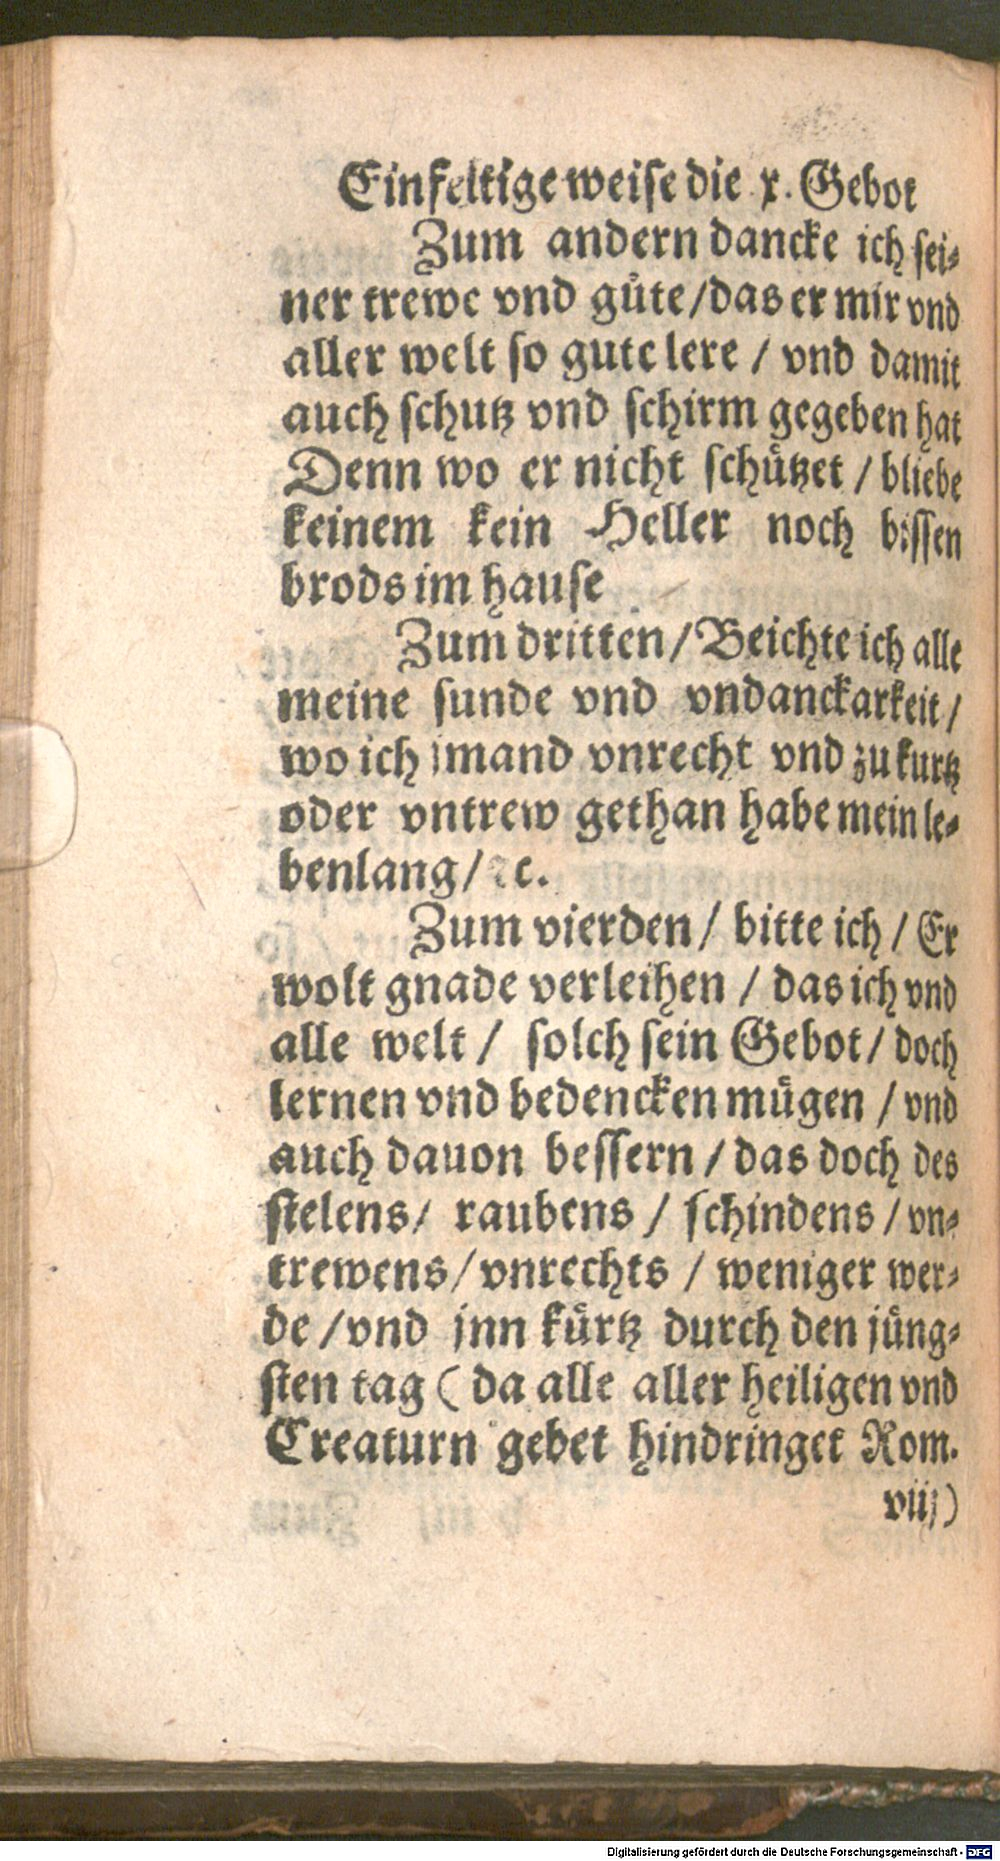 Einfeltige weise die x. Gebot
Zum andern dancke ich sei⸗
ner trewe vnd gůte/das er mir vnd
aller welt so gute lere / vnd damit
auch schutz vnd schirm gegeben hat
Denn wo er nicht schůtzet / bliebe
keinem kein Heller noch bissen
brods im hause
Zum dritten/Beichte ich alle
meine sunde vnd vndanckarkeit/
wo ich jmand vnrecht vnd zu kurtz
oder vntrew gethan habe mein le⸗
benlang/ ꝛc.
Zum vierden / bitte ich / Er
wolt gnade verleihen / das ich vnd
alle welt / solch sein Gebot / doch
lernen vnd bedencken můgen / vnd
auch dauon bessern / das doch des
stelens/ raubens / schindens / vn⸗
trewens/vnrechts / weniger wer⸗
de /vnd jnn kůrtz durch den jůng⸗
sten tag (da alle aller heiligen vnd
Creaturn gebet hindringet Rom.
viij)
Digitalisierung gefördert durch die Deutsche Forschungsgemeinschaft - DFG